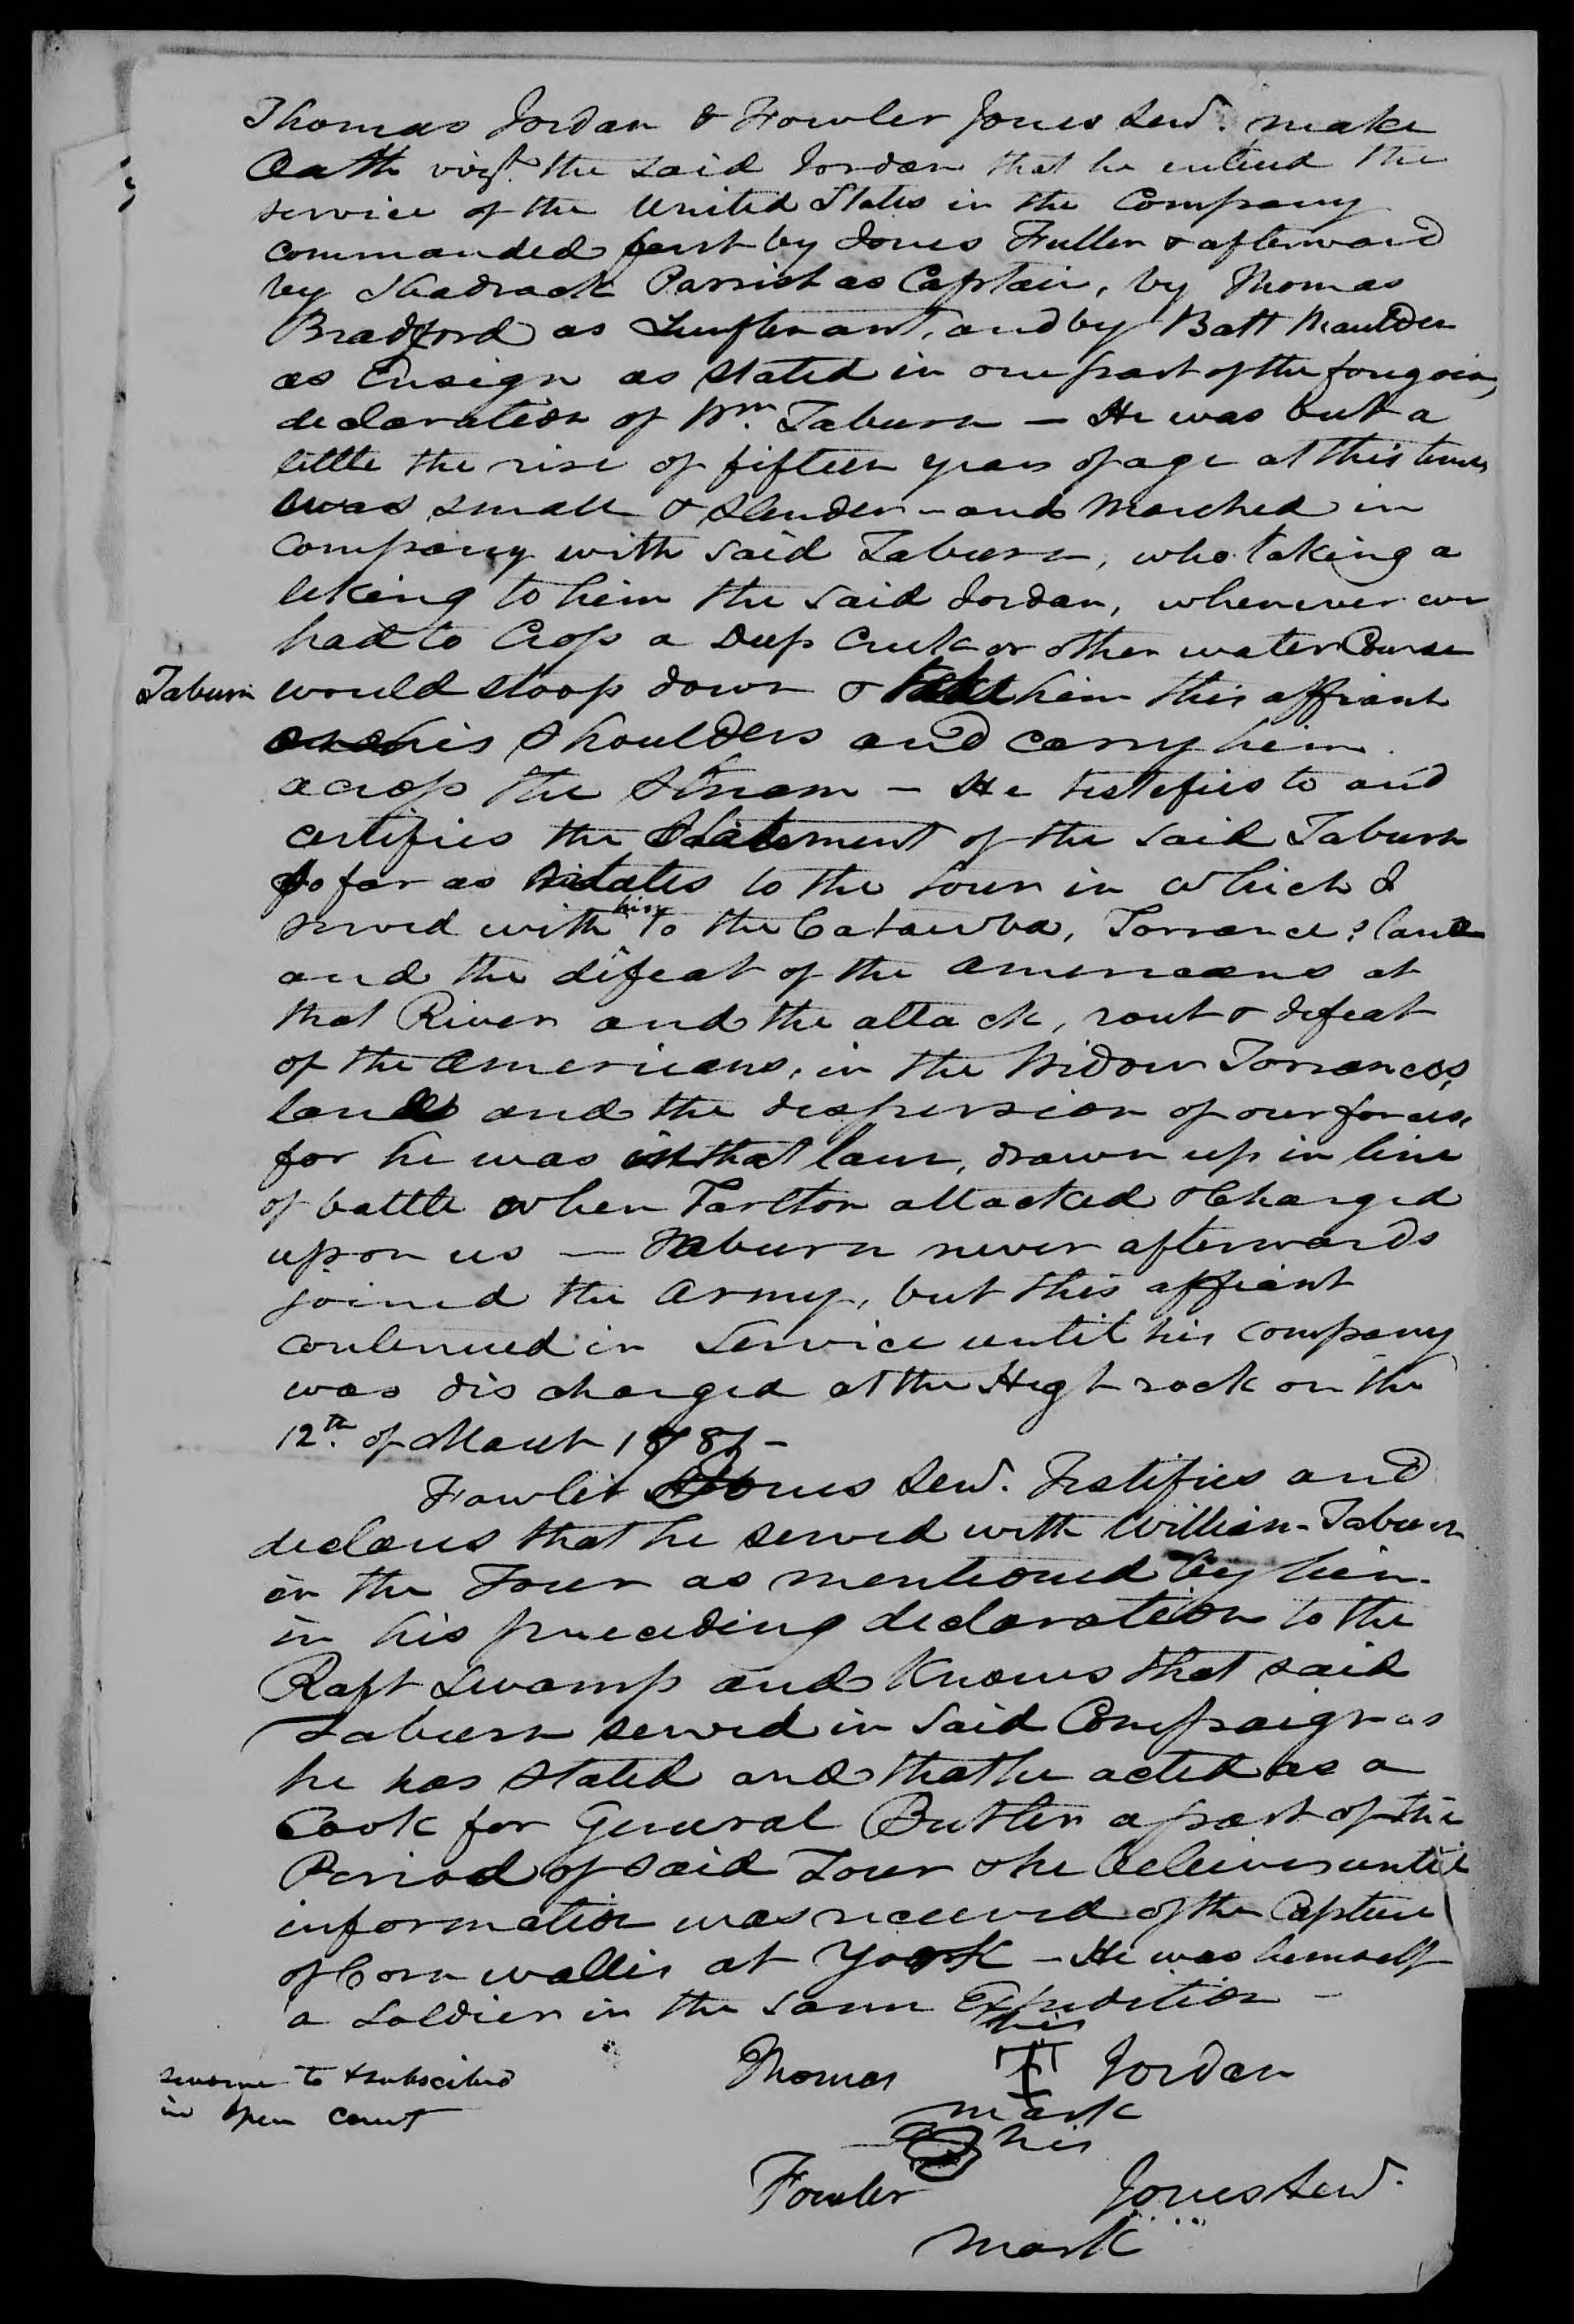 Thomas Jordan & Fowler Jones Senr. make
Oath vizt. the said Jordan that he enterd the
service of the United States in the Company
commanded first by Jones Fuller & afterward
by Shadrack Parrish as Captain, by Thomas
Bradford as Lieuftenant, and by Batt Maulden
as Ensign as stated in one part of the foregoing
declaration of Wm. Taburn — He was but a
little the rise of fifteen years of age at this time
was small & slender — and marched in
company with said Taburn, who taking a
liking to him the said Jordan, whenever we
had to Cross a Deep Creek or other water Course
Taburn would stoop down & take him this affiant
on his shoulders and carry him
across the stream — He testefies to and
certifies the Statement of the said Taburn
so far as relates to the tour in which I
served with him to the Catawba, Torrance's lane
and the defeat of the americans at
that River and the attack, rout & defeat
of the Americans, in the Widow Torrances
lane and the dispersion of our forces,
for he was in that lane, drawn up in line
of battle when Tarlton attacked & Charged
upon us — Taburn never afterwards
joined the Army, but this affiant
continued in Service until his company
was discharged at the High rock on the
12th. of March 1781 —
Fowler Jones Senr. Testifies and
declares that he served with William Taburn
in the Tour as mentioned by him
in his preceding declaration to the
Raft Swamp and Knows that said
Taburn served in said Campaign as
he has stated and that he acted as a
Cook for General Butler a part of the
Period of said Tour & he believes until
information was received of the Capture
of Cornwallis at York — He was himself
a soldier in the same Expedition —
his
Thomas T Jordan
mark
sworn to & subscibed
in open Court
his
Fowler Jones Senr.
mark